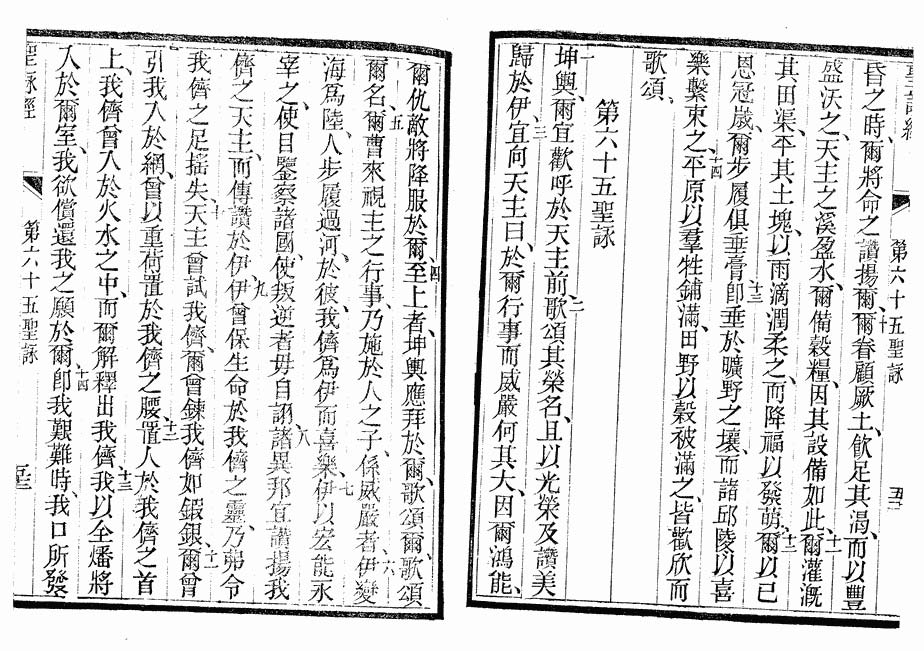 昏之時、爾將命之讚揚爾、十爾眷顧厥土、飲足其渴、而以豐
盛沃之、天主之溪盈水、爾備穀糧、因其設備如此、十一爾灌漑
其田渠、平其土塊、以雨滴潤柔之、而降福以發萌、十二爾以已
恩冠歲、爾步履俱垂膏、十三即垂於曠野之壤、而諸邱陵以喜
樂繫束之、十四平原以羣牲鋪滿、田野以穀被滿之、皆歡欣而
歌頌、
第六十五聖詠
一坤輿、爾宜歡呼於天主前、二歌頌其榮名、且以光榮及讚美
歸於伊、三宜向天主曰、於爾行事而威嚴何其大、因爾鴻能、
第六十五聖詠
爾仇敵將降服於爾、四至上者、坤輿應拜於爾、歌頌爾、歌頌
爾名、五爾曹來視主之行事、乃施於人之子、係威嚴者、六伊變
海爲陸、人步履過河、於彼、我儕爲伊而喜樂、七伊以宏能永
宰之、使目鑒察諸國、使叛逆者毋自詡、八諸異邦宜讚揚我
儕之天主、而傳讚於伊、九伊曾保生命於我儕之靈、乃弗令
我儕之足搖失、十天主曾試我儕、爾曾鍊我儕如鍜銀、十一爾曾
引我入於網、曾以重荷置於我儕之腰、十二置人於我儕之首
上、我儕曾入於火水之中、而爾解釋出我儕、十三我以全燔將
入於爾室、我欲償還我之願於爾、十四卽我艱難時、我口所發
聖詠經
第六十五聖詠